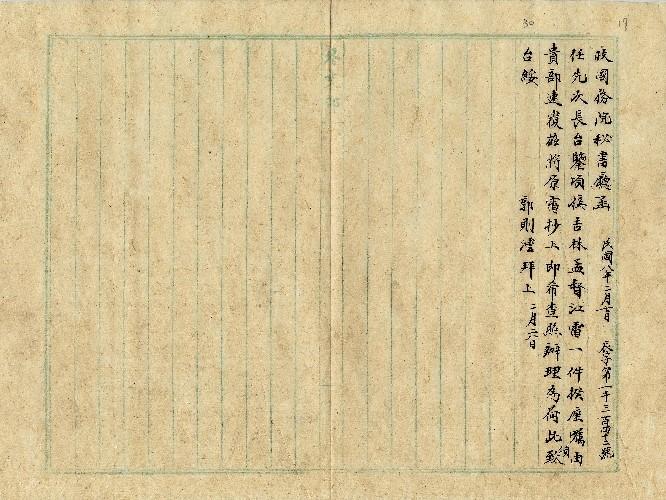 30
19
收國務院秘書廳函 民國八年二月七日 辰字第一千三百四十二號
任先次長台鑒頃接吉林孟督江電一件揆座囑由
貴部速復茲將原電抄上即希查照辦理為荷此致頌
台綏 郭則澐拜上二月六日